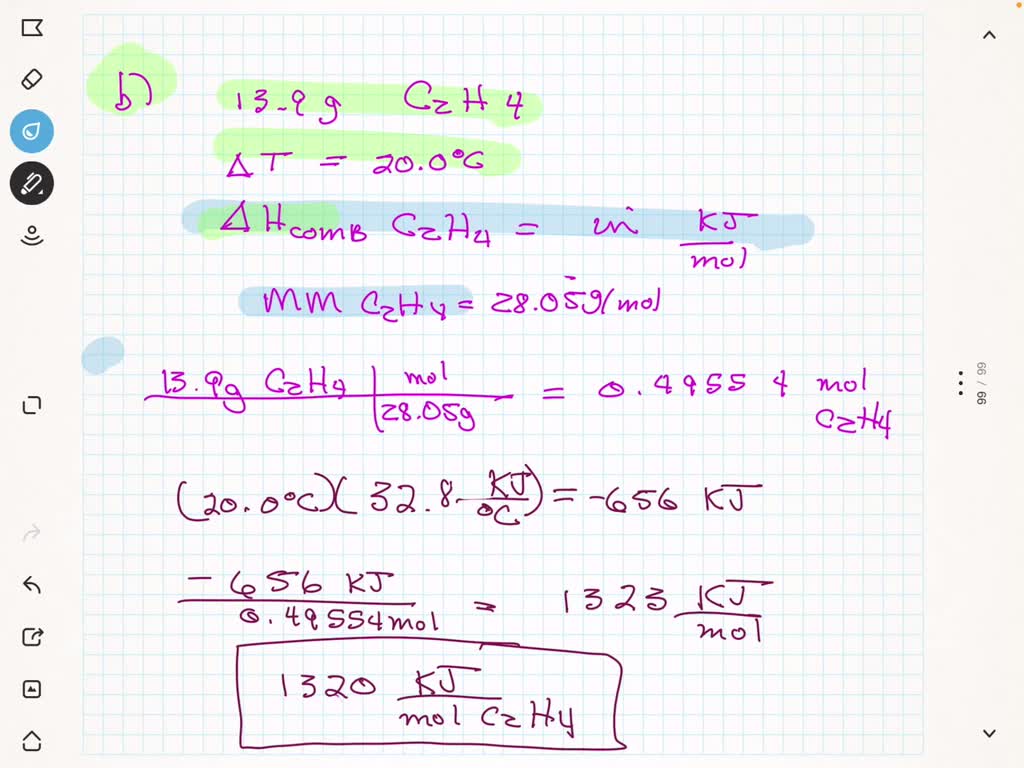 b)
13.9g C2H4
ΔT = 20.0°C
ΔHcomB C2H4 = in KJ/mol
MM C2H4 = 28.05g/mol
13.9g C2H4 | mol / 28.05g = 0.49554 mol C2H4
(20.0°C)(32.8 KJ/°C) = -656 KJ
-656 KJ / 0.49554mol = 1323 KJ/mol
1320 KJ / mol C2H4
66 / 66